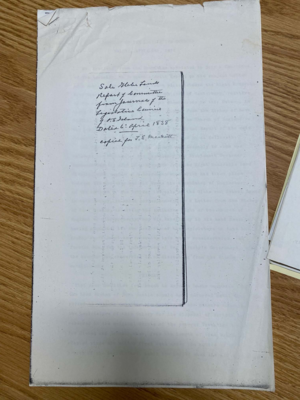 Sale Glebe Lands
Report of Committee
from Journals of the
Legislative Council
of P.E. Island,
Dated 6th April 1835
copies for